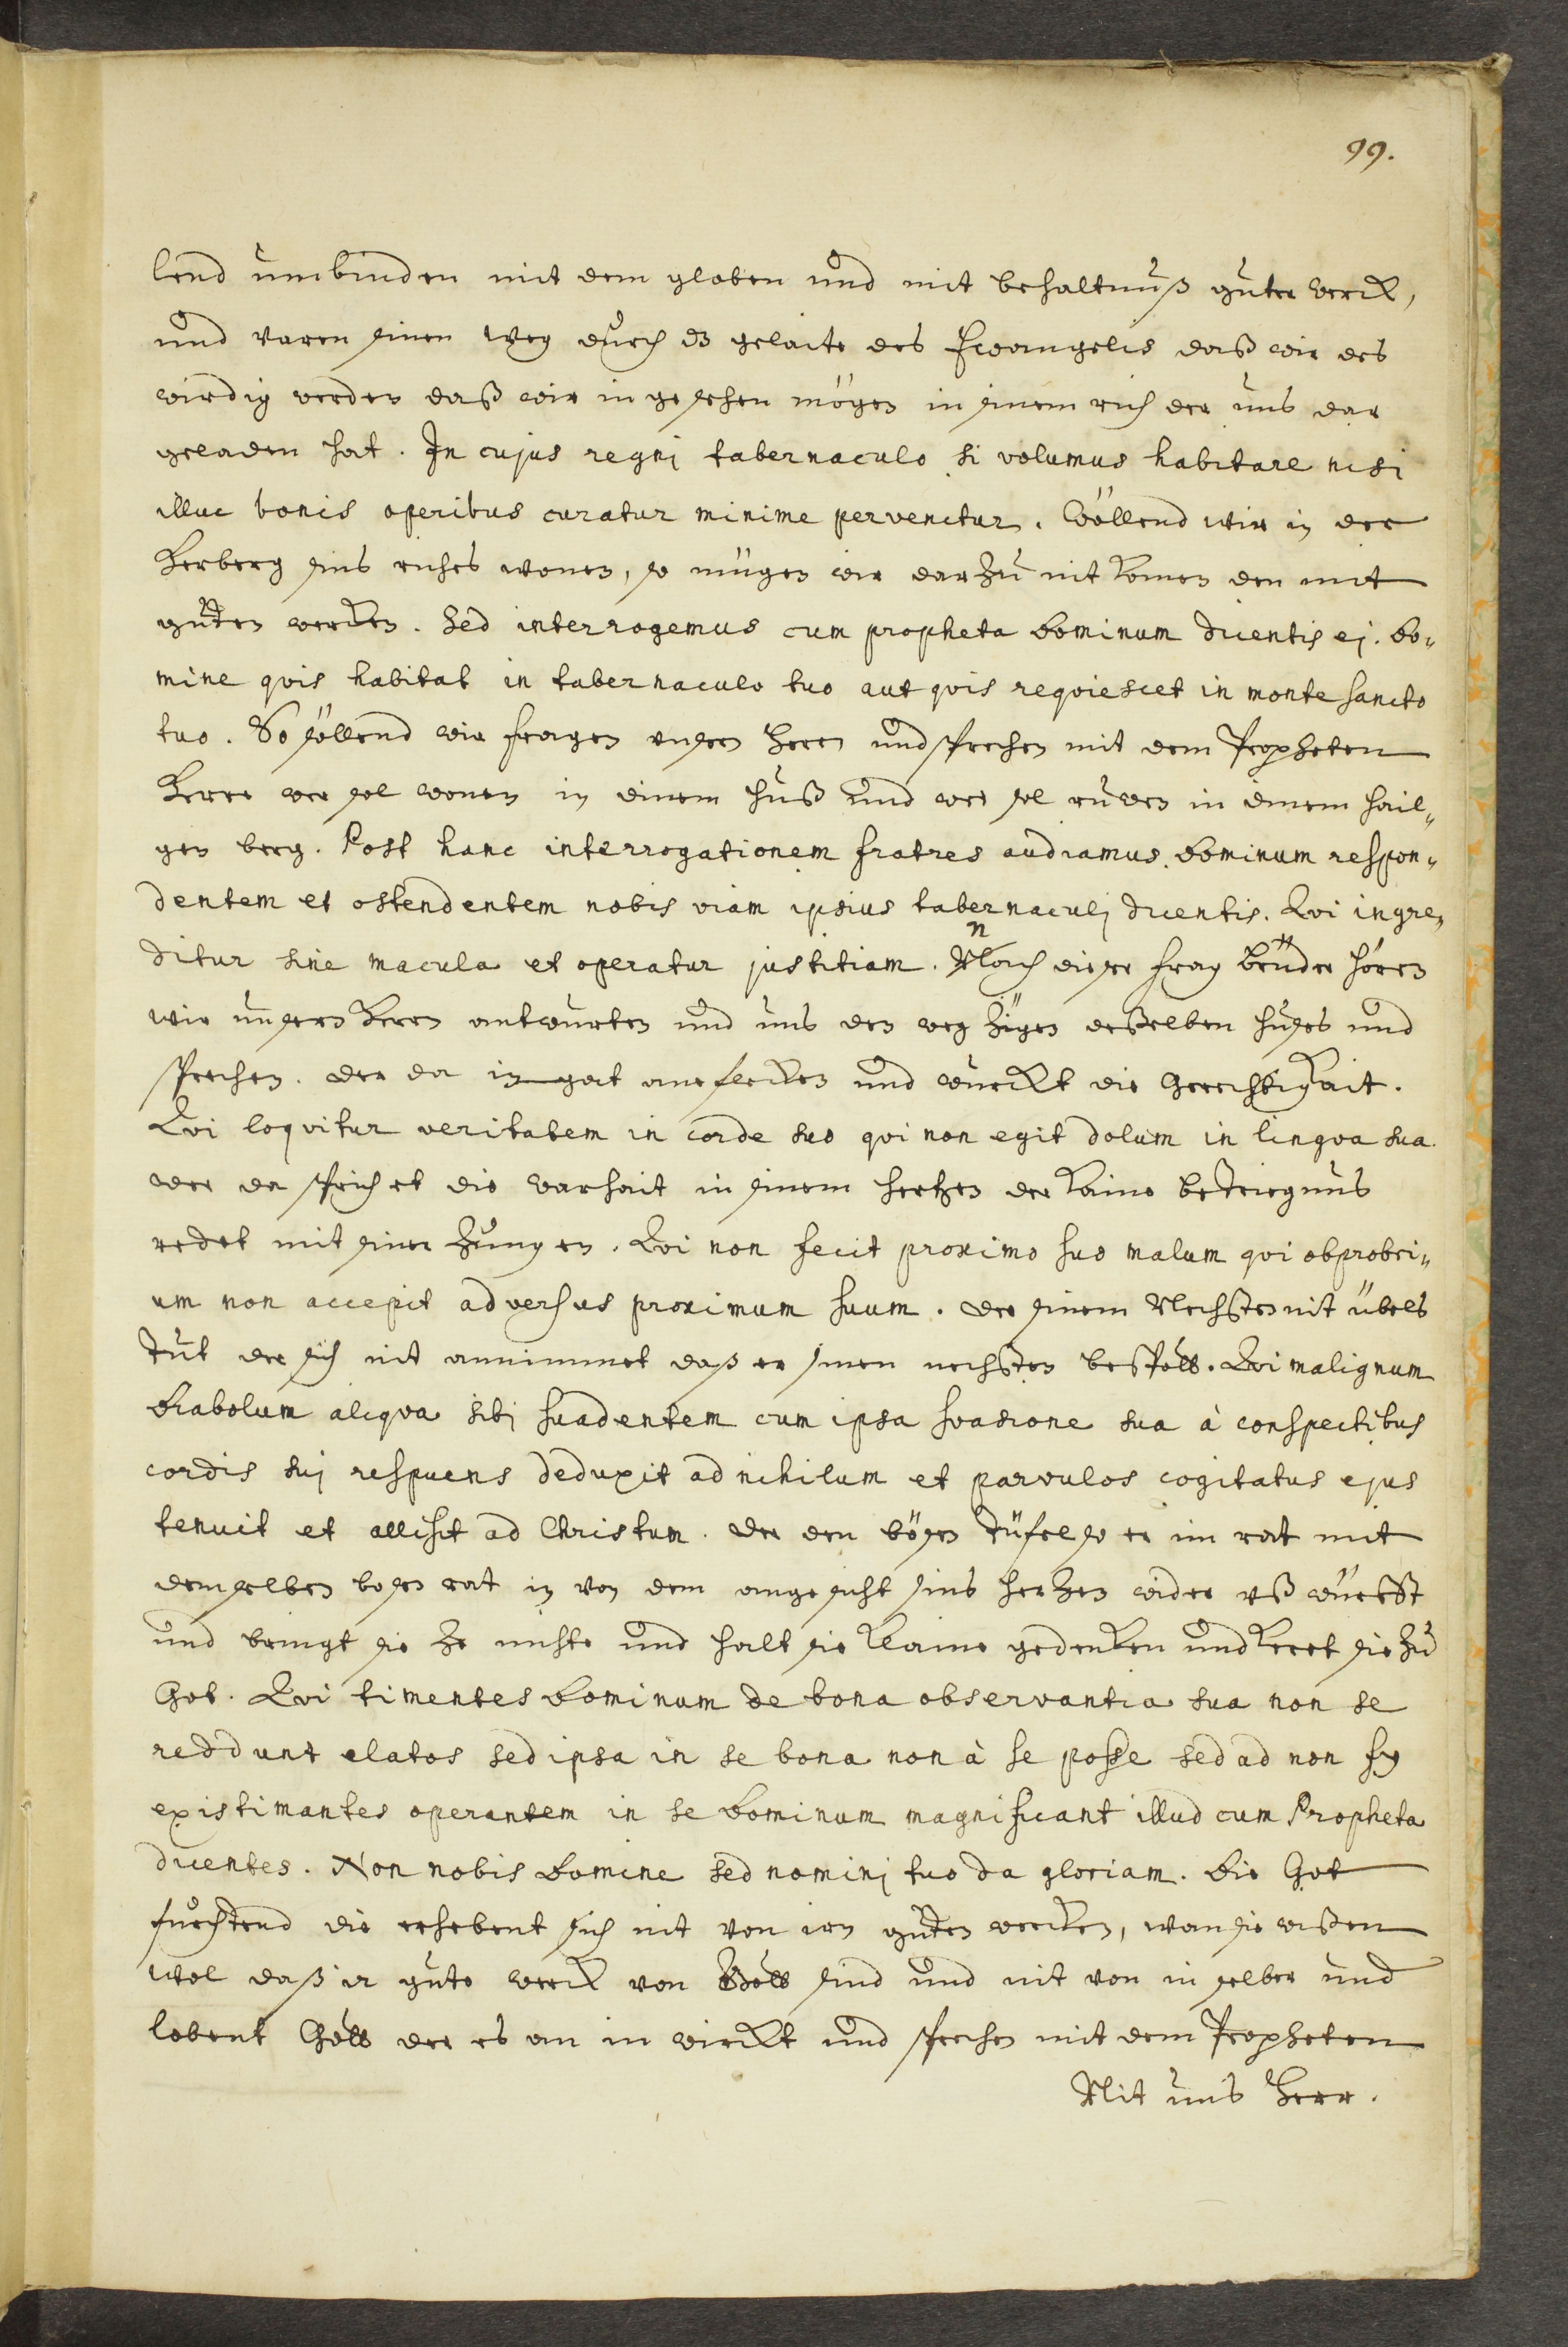 99.
lend umbinden mit dem globen und mit behaltnuß guter werck,
und varen sinen weg durch dz gelaite des Ewangelis daß wir des
wirdig werden daß wir in gesehen mögen in sinem rich der uns dar
geladen hat. In cujus regnj tabernaculo si volumus habitare nisi
illuc bonis operibus curatur minime pervenitur. Wöllend wir in der
Herberg sins riches wonen, so mügen wir darzu nit komen den mit
guten wercken. Sed interrogemus cum propheta Dominum dicentis ej. Do„
mine qvis habitat in tabernaculo tuo aut qvis reqviescet in monte sancto
tuo. So söllend wir fragen unsern Herrn und sprechen mit dem Propheten
Herre wer sol wonen in dinem huß und wer sol ruwen in dinem hail„
gen berg. Post hanc interrogationem fratres audiamus Dominum respon„
dentem et ostendentem nobis viam ipsius tabernaculj dicentis. Qvi ingre„
ditur sine macula et operatur justitiam. Nach diser frag brüder hören
wir unsern Herrn antwurten und uns den weg zigen desselben huses und
sprechen. der da in gat ane flecken und würckt die Gerechtigkait.
Qvi loqvitur veritatem in corde suo qvi non egit dolum in lingva sua.
der da sprichet die warhait in sinem hertzen der kaine betriegnus
redet mit siner zungen. Qvi non fecit proximo suo malum qvi obprobri„
um non accepit adversus proximum suum. der sinem Nechsten nit übels
tut der sich nit annimmet daß er sinen nechsten bespött. Qvi malignum
Diabolum aliqva sibj suadentem cum ipsa svasione sua à conspectibus
cordis suj respuens deduxit ad nihilum et parvulos cogitatus ejus
tenuit et allisit ad Christum. der den bösen Tüfel so er im rat mit
demselben bosen rat in von dem angesicht sins herzen wider uß würfft
und bringt sie ze nichte und halt sie klaine gedenken und keret sie zu
Got. Qvi timentes Dominum de bona observantia sua non se
reddunt elatos sed ipsa in se bona non à se posse sed ad non sy
existimantes operantem in se Dominum magnificant illud cum Propheta
dicentes. Non nobis Domine sed nominj tuo da gloriam. Die Got
furchtend die erhebent sich nit von irn guten wercken, wan sie wißen
wol daß ir gute werck von Gott sind und nit von in selber und
lobent Gott der es an in wirckt und sprechen mit dem Propheten
Nit uns Herr.